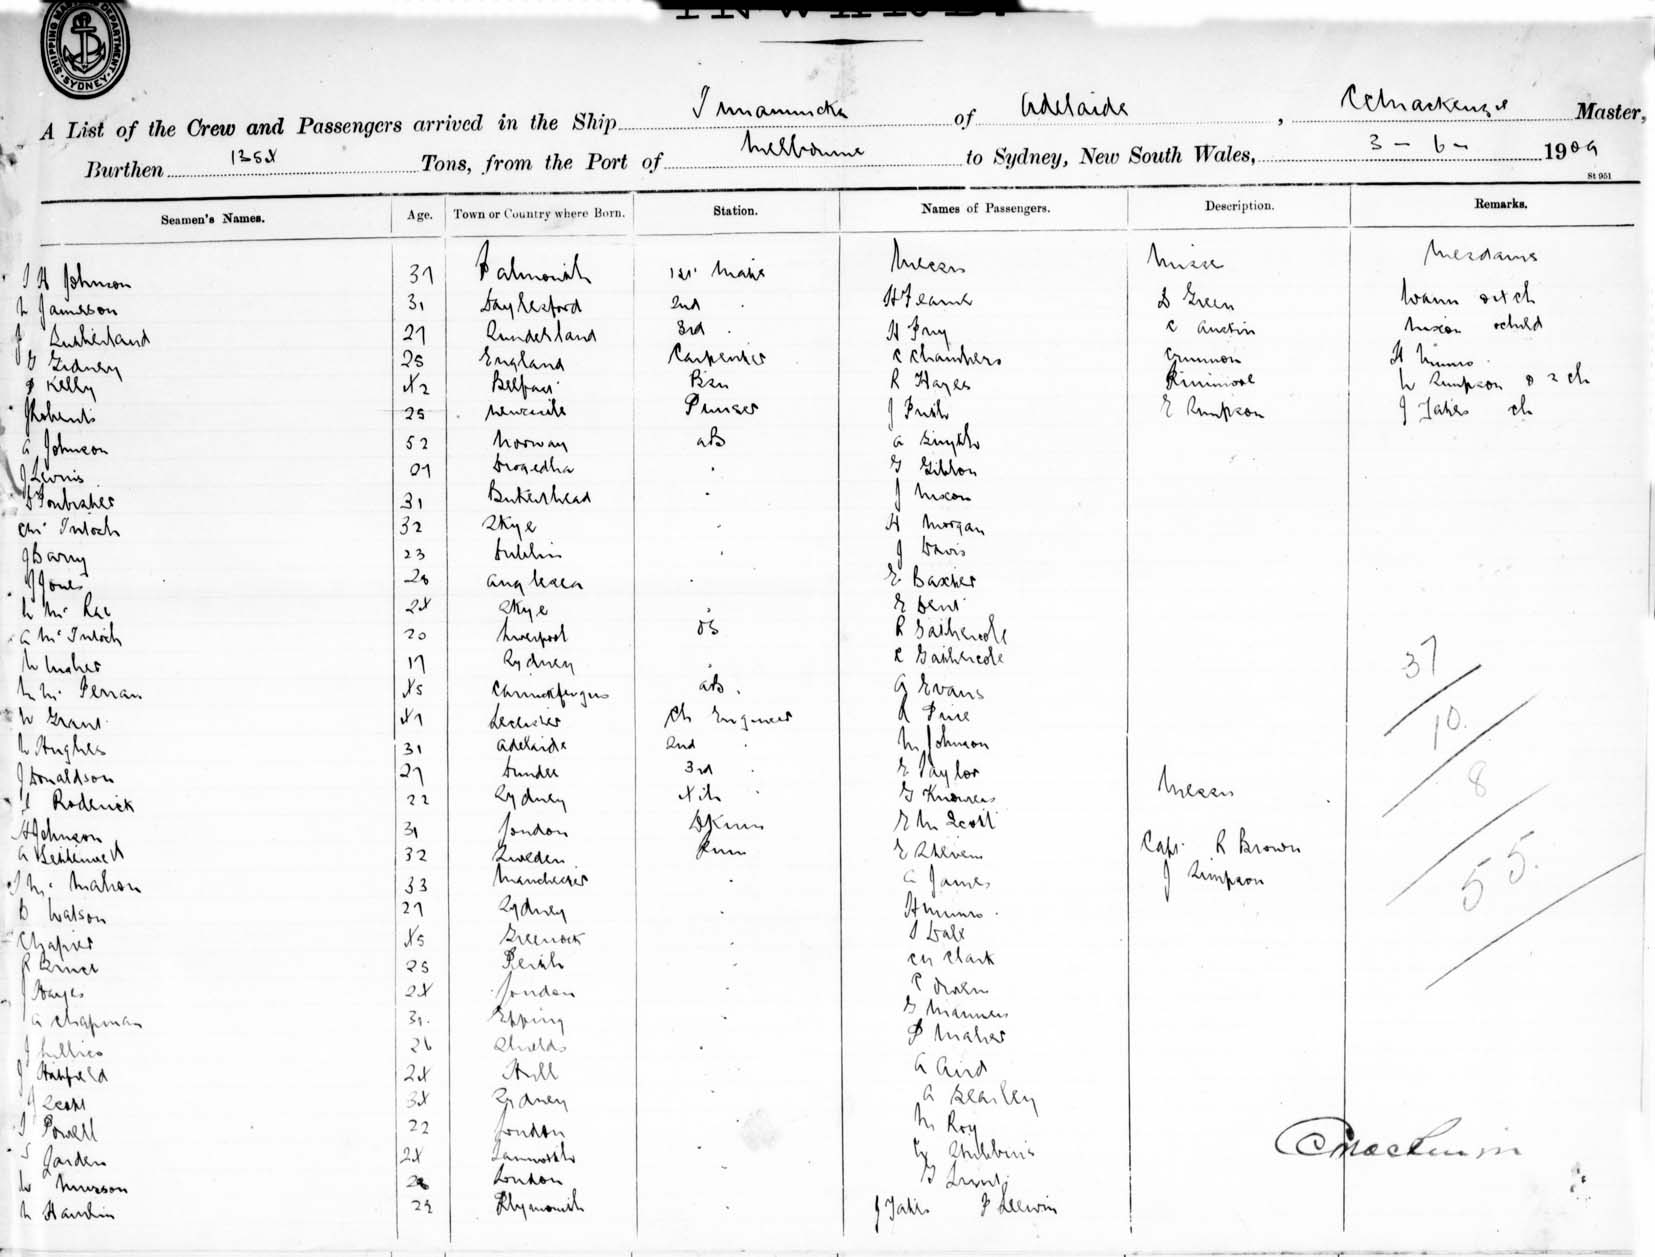 INWARD.
SHIPPING MASTER'S DEPARTMENT SYDNEY
A List of the Crew and Passengers arrived in the Ship Innamincka of Adelaide, C McKenzie Master,
Burthen 1354 Tons, from the Port of Melbourne to Sydney, New South Wales, 3 - 6 - 1909
St 951
Seamen's Names. Age. Town or Country where Born. Station. Names of Passengers. Description. Remarks.
Messrs Misses Mesdames
J H Johnson 37 Falmouth 1st Mate
W Jameson 31 Daylesford 2nd . H Fearne D Green Wann & 4 ch
J Sutherland 27 Sunderland 3rd . H Fry C Austin Nixon & child
Gidney 25 England Carpenter C Chambers Grummon H Munro
P Kelly 42 Belfast Bsn R Hayes Finimore W Simpson & 2 ch
J Roberts 25 Newcastle Purser J Firth E Simpson J Oakes ch
A Johnson 52 Norway AB A Smyth
J Lewis Drogedha . G Gibbon
D Foubister 31 Birkenhead . J Nixon
Mc Intosh 32 Skye . H Morgan
J Barry 23 Dublin . J Davis
J Jones 28 Anglesea . E Baxter
W Mc Rae 24 Skye . E Dent
A Mc Intosh 20 Liverpool OS R Gathercole
W Maher 19 Sydney . C Gathercole
37
Mc Ferran 45 Carrickfergus AB . A Evans
W Grant 47 Leicester Ch Engineer R Pine
10.
W Hughes 31 Adelaide 2nd . M Johnson
J Donaldson 27 Dundee 3rd . E Taylor Messrs
8
Roderick 22 Sydney 4th . G Knowles
H Johnson 31 London DKmn E M Scott
A 32 Sweden Fmn E Stevens Capt. R Brown
J Mc Mahon 33 Manchester . A James J Simpson
55.
D Watson 27 Sydney . H Munro
C Napier 45 Greenock . J Dale
R Bruce 25 Perth . Clark
J Hayes 24 London . C Owen
A Chapman 31 Epping . G Manners
J Lillico 26 Shields . P Maher
J Hatfield 24 Hull . A Aird
J Scott 34 Sydney . A Bearley
J Powell 22 London . M Roy
S Jarden 24 Tamworth . G Stubbins
W Murson 28 London . G Lund
W Hawkin 29 Plymouth . J Oakes P Leewin
C MacKenzie